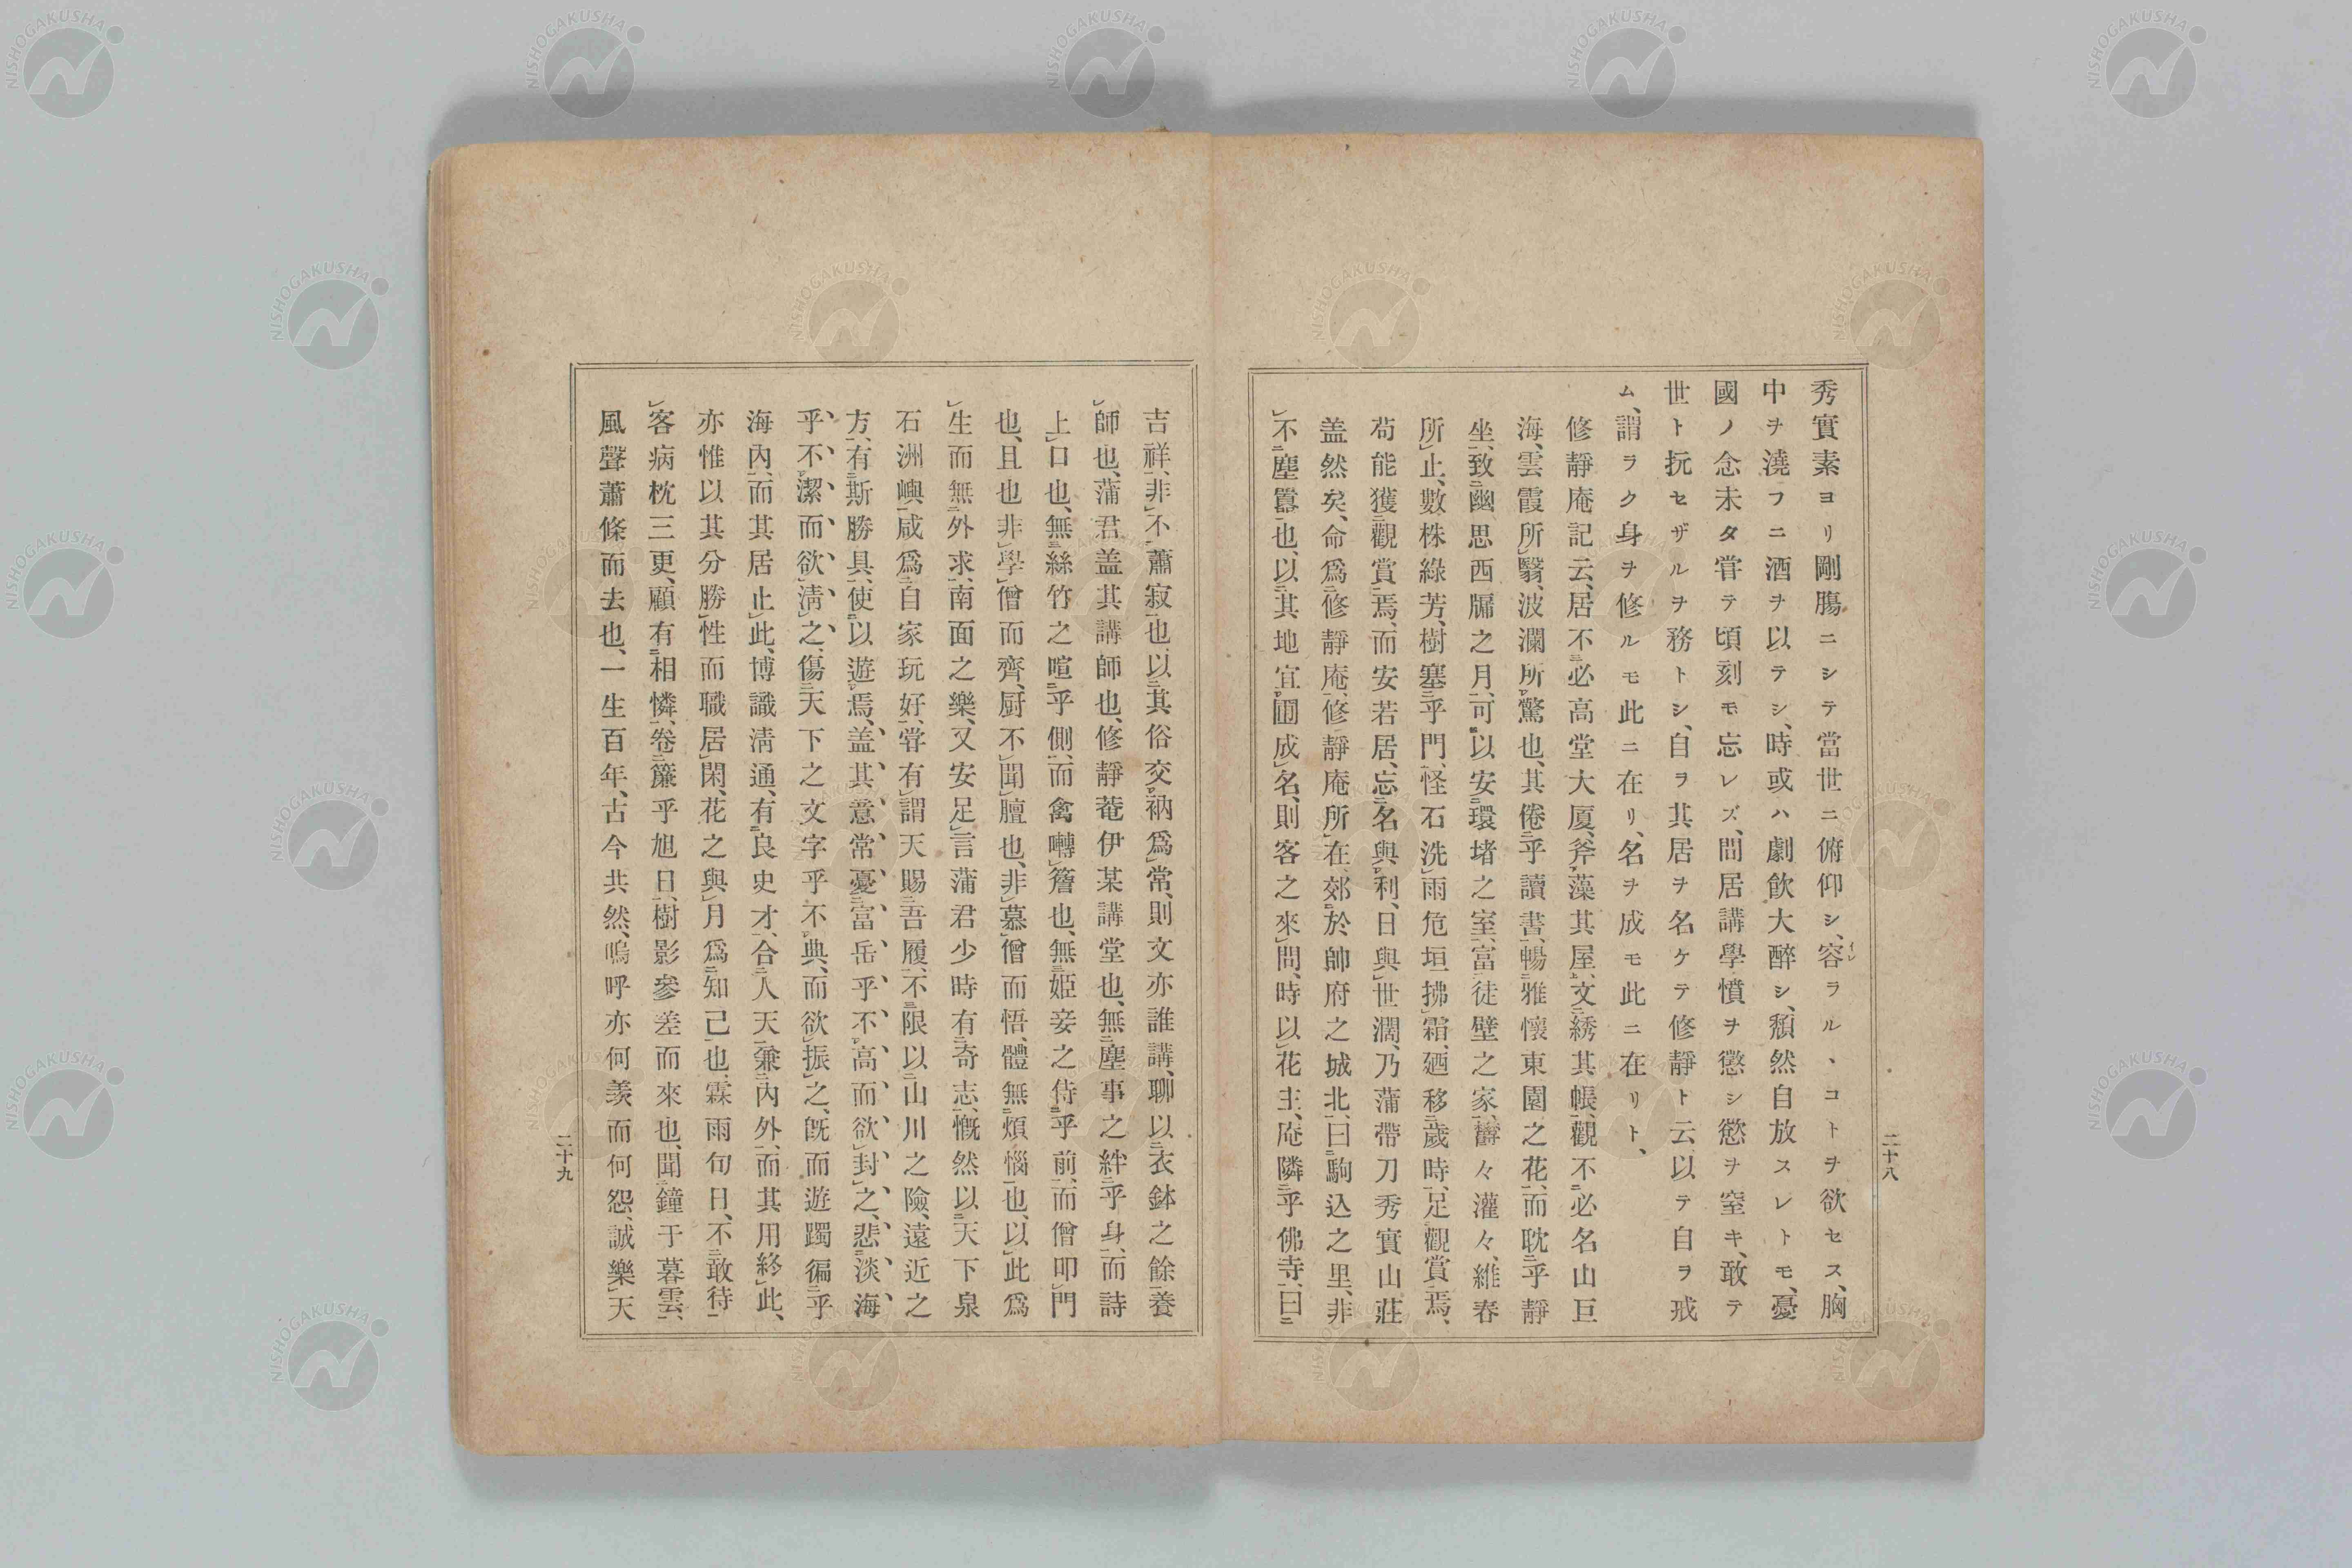 秀實素ヨリ剛膓ニシテ當世ニ俯仰シ、容ラル、コトヲ欲セス、胸
中ヲ澆フニ酒ヲ以テシ、時或ハ劇飮大醉シ、頽然自放スレトモ、憂
國ノ念未タ甞テ頃刻モ忘レズ、間居講學憤ヲ懲シ慾ヲ窒キ、敢テ
世ト抏セザルヲ務トシ、自ヲ其居ヲ名ケテ修靜ト云、以テ自ヲ戒
ム、謂ラク身ヲ修ルモ此ニ在リ、名ヲ成モ此ニ在リト、
修靜庵記云、居不必高堂大厦、斧藻其屋、文綉其帳、觀不必名山巨
海、雲霞所翳、波瀾所驚也、其倦乎讀書、暢雅懷東園之花、而耽乎靜
坐、致幽思西牖之月、可以安環堵之室、富徒壁之家、欝々灌々、維春
所止、數株綠芳、樹塞乎門、怪石洗雨危垣拂霜、廼移歲時、足觀賞焉、
苟能獲觀賞焉、而安若居、忘名與利、日與世濶、乃蒲帶刀秀實山莊
盖然矣、命爲修靜庵、修靜庵所在、郊於帥府之城北、曰駒込之里、非
不塵囂也、以其地宜圃成名、則客之來問、時以花主、庵隣乎佛寺、曰
二十八
吉祥、非不蕭寂也、以其俗交衲爲常、則文亦誰講、聊以衣鉢之餘養
師也、蒲君盖其講師也、修靜菴伊某講堂也、無塵事之絆乎身、而詩
上口也、無絲竹之喧乎側、而禽囀簷也、無姫妾之侍乎前、而僧叩門
也、且也非學僧而齊、厨不聞膻也、非慕僧而悟、體無煩惱也、以此爲
生而無外求、南面之樂、又安足言蒲君少時有奇志、慨然以天下泉
石洲嶼、咸爲自家玩好、甞有謂天賜吾履、不限以山川之險、遠近之
方、有斯勝具、使以遊焉、盖其意常憂富岳乎不高而欲封之、悲淡海
乎、不潔而欲淸之、傷天下之文字乎不典、而欲振之、旣而遊躅徧乎
海內、而其居止此、博識淸通、有良史才、合人天、兼內外、而其用終此、
亦惟以其分勝性而職居閑、花之與月爲知己也、霖雨旬日、不敢待
客病枕三更、顧有相憐、卷簾乎旭日、樹影參差而來也、聞鐘于暮雲、
風聲蕭條而去也、一生百年、古今共然、嗚呼亦何羨而何怨、誠樂天
二十九
NISHOGAKUSHA